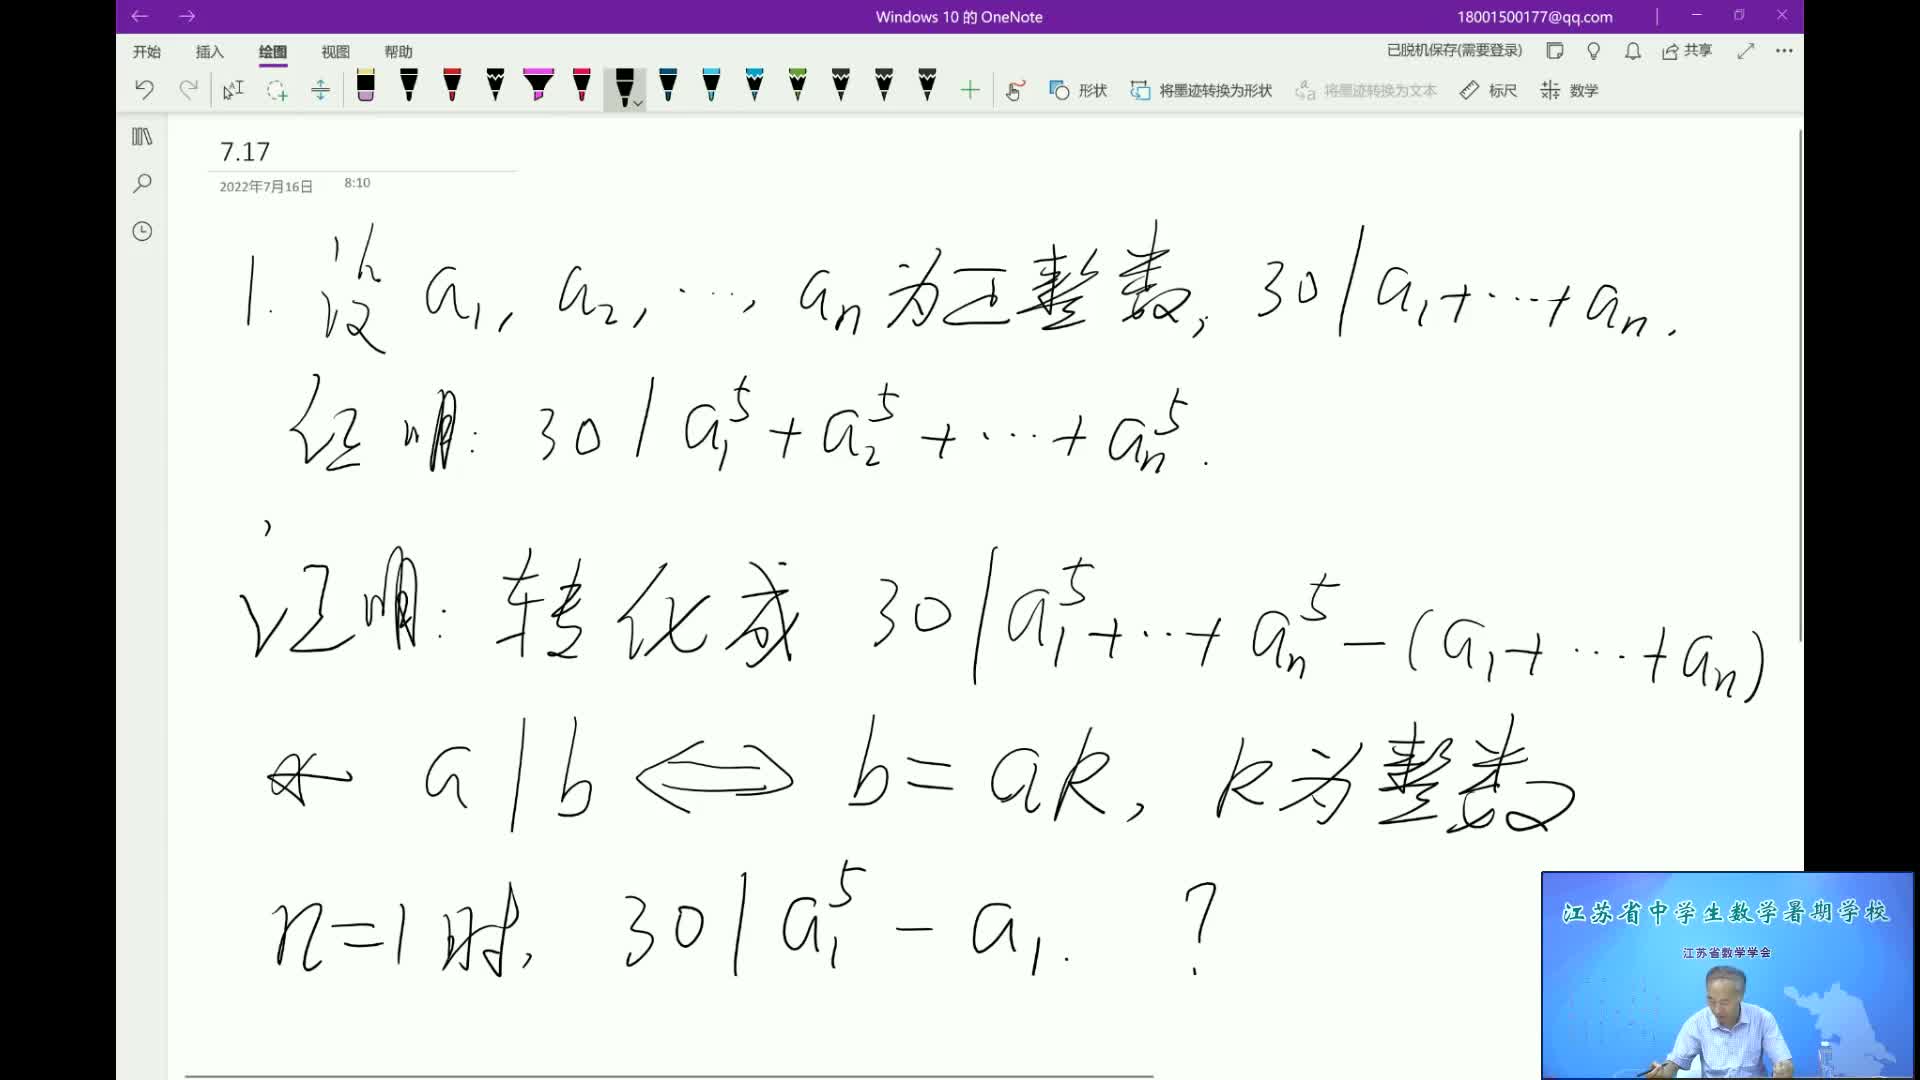 Windows 10 的 OneNote
18001500177@qq.com
开始 插入 绘图 视图 帮助
已脱机保存(需要登录) 共享
形状 将墨迹转换为形状 将墨迹转换为文本 标尺 数学
7.17
2022年7月16日 8:10
1. 设 a₁, a₂, ⋯, aₙ 为正整数, 30 | a₁+⋯+aₙ.
证明: 30 | a₁⁵+a₂⁵+⋯+aₙ⁵.
证明: 转化成 30 | a₁⁵+⋯+aₙ⁵-(a₁+⋯+aₙ)
a | b ⟺ b=ak, k为整数
n=1时, 30 | a₁⁵-a₁. ?
江苏省中学生数学暑期学校
江苏省数学学会